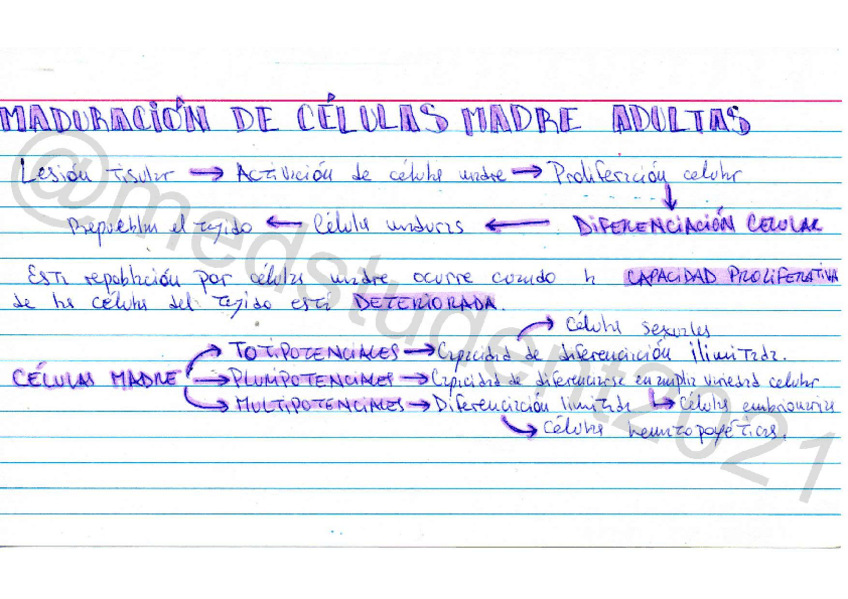 MADURACIÓN DE CÉLULAS MADRE ADULTAS
Lesión tisular → Activación de células madre → Proliferación celular
↓
Repueblan el tejido ← Células maduras ← DIFERENCIACIÓN CELULAR
Esta repoblación por células madre ocurre cuando la CAPACIDAD PROLIFERATIVA
de las células del tejido está DETERIORADA.
Células sexuales
TOTIPOTENCIALES → Capacidad de diferenciación ilimitada.
CÉLULAS MADRE → PLURIPOTENCIALES → Capacidad de diferenciarse en amplia variedad celular
MULTIPOTENCIALES → Diferenciación limitada → Células embrionarias
→ Células hematopoyéticas.
@medstudent2021